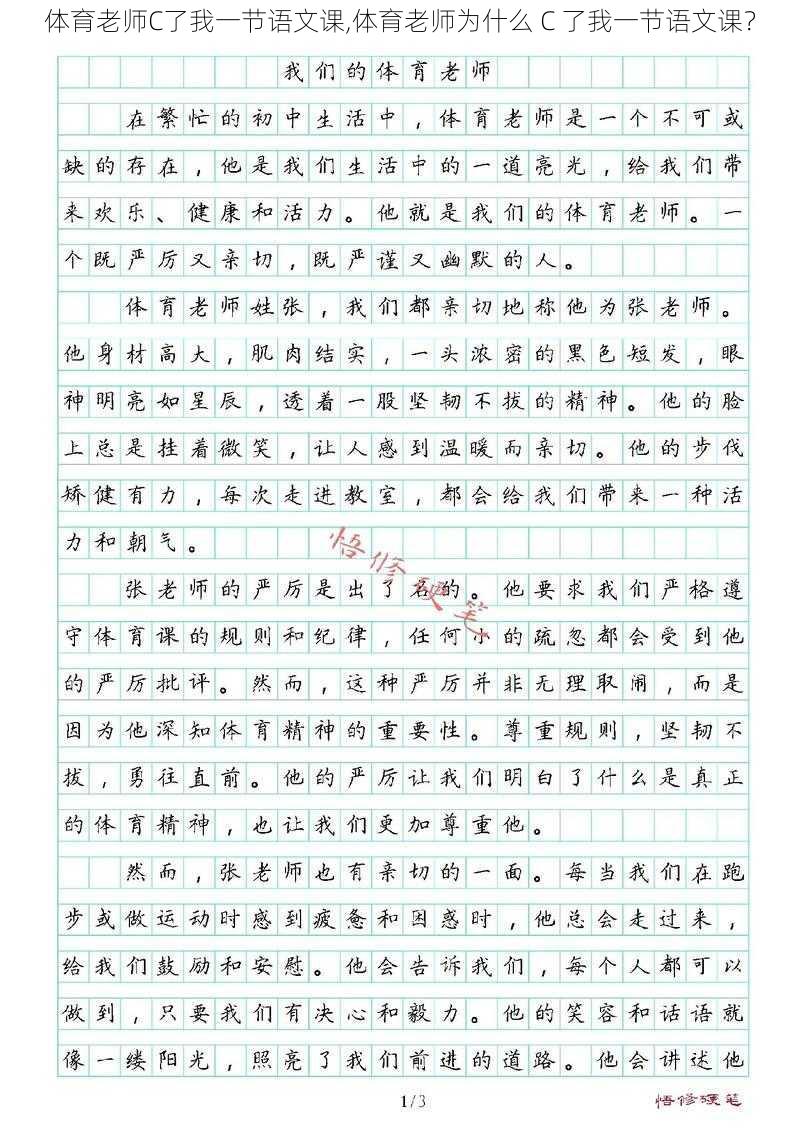 体育老师C了我一节语文课,体育老师为什么 C 了我一节语文课?
我们的体育老师
在繁忙的初中生活中，体育老师是一个不可或
缺的存在，他是我们生活中的一道亮光，给我们带
来欢乐、健康和活力。他就是我们的体育老师。一
个既严厉又亲切，既严谨又幽默的人。
体育老师姓张，我们都亲切地称他为张老师。
他身材高大，肌肉结实，一头浓密的黑色短发，眼
神明亮如星辰，透着一股坚韧不拔的精神。他的脸
上总是挂着微笑，让人感到温暖而亲切。他的步伐
矫健有力，每次走进教室，都会给我们带来一种活
力和朝气。
张老师的严厉是出了名的。他要求我们严格遵
守体育课的规则和纪律，任何小的疏忽都会受到他
的严厉批评。然而，这种严厉并非无理取闹，而是
因为他深知体育精神的重要性。尊重规则，坚韧不
拔，勇往直前。他的严厉让我们明白了什么是真正
的体育精神，也让我们更加尊重他。
然而，张老师也有亲切的一面。每当我们在跑
步或做运动时感到疲惫和困惑时，他总会走过来，
给我们鼓励和安慰。他会告诉我们，每个人都可以
做到，只要我们有决心和毅力。他的笑容和话语就
像一缕阳光，照亮了我们前进的道路。他会讲述他
悟修硬笔
1/3
悟修硬笔